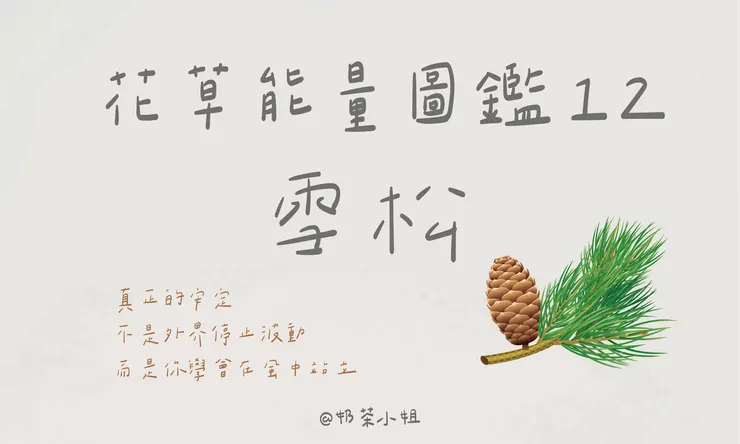 花草能量圖鑑12
雪松
真正的安定
不是外界停止波動
而是你學會在風中站立
@奶茶小姐